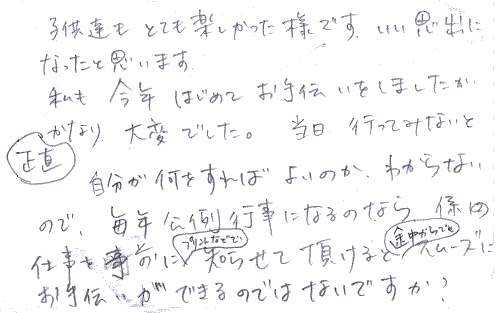 子供達も とても楽しかった様です。いい思い出に
なったと思います。
私も 今年 はじめて お手伝いをしましたが
正直
かなり 大変でした。 当日 行ってみないと
自分が 何をすれば よいのか、わからない
ので、毎年 公例行事になるのなら 係の
プリントなどで
途中からでも
仕事も 事前に 知らせて 頂けると スムーズに
お手伝いができるのではないですか?